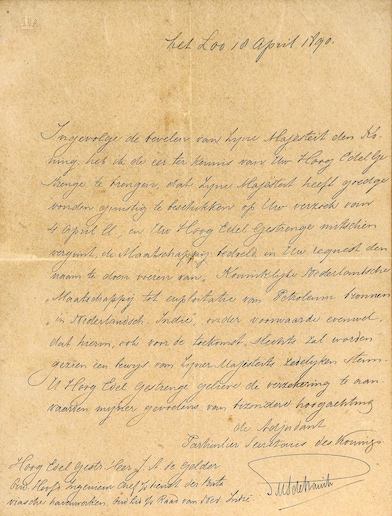 Het Loo 10 April 1890.
Ingevolge de bevelen van Zyne Majesteit den Kö-
ning, heb ik de eer ter kennis van Uw Hoog Edel Ge
strenge te brengen, dat Zyne Majesteit heeft goedge
vonden gunstig te beschikken op Uw verzoek van
4 April ll, en Uw Hoog Edel Gestrenge mitsdien
vergunt, de Maatschappy bedoeld in Uw request den
naam te doen voeren van „Koninklyke Nederlandsche
„Maatschappy tot exploitatie van Petroleum bronnen
„in Nederlandsch Indië, onder voorwaarde evenwel,
dat hierin, ook voor de toekomst, slechts zal worden
gezien een bewys van Zyner Majesteits zedelyken steun.
U Hoog Edel Gestrenge gelieve de verzekering te aan-
vaarden myner gevoelens van byzondere hoogachting
de Adjudant
Particulier Secretaris des Konings
Hoog Edel Gestr Heer J. A. de Gelder
Oud Hoofd Ingenieur Chef dienst der Bata
viasche havenwerken, Oud lid Raad van Ned. Indië